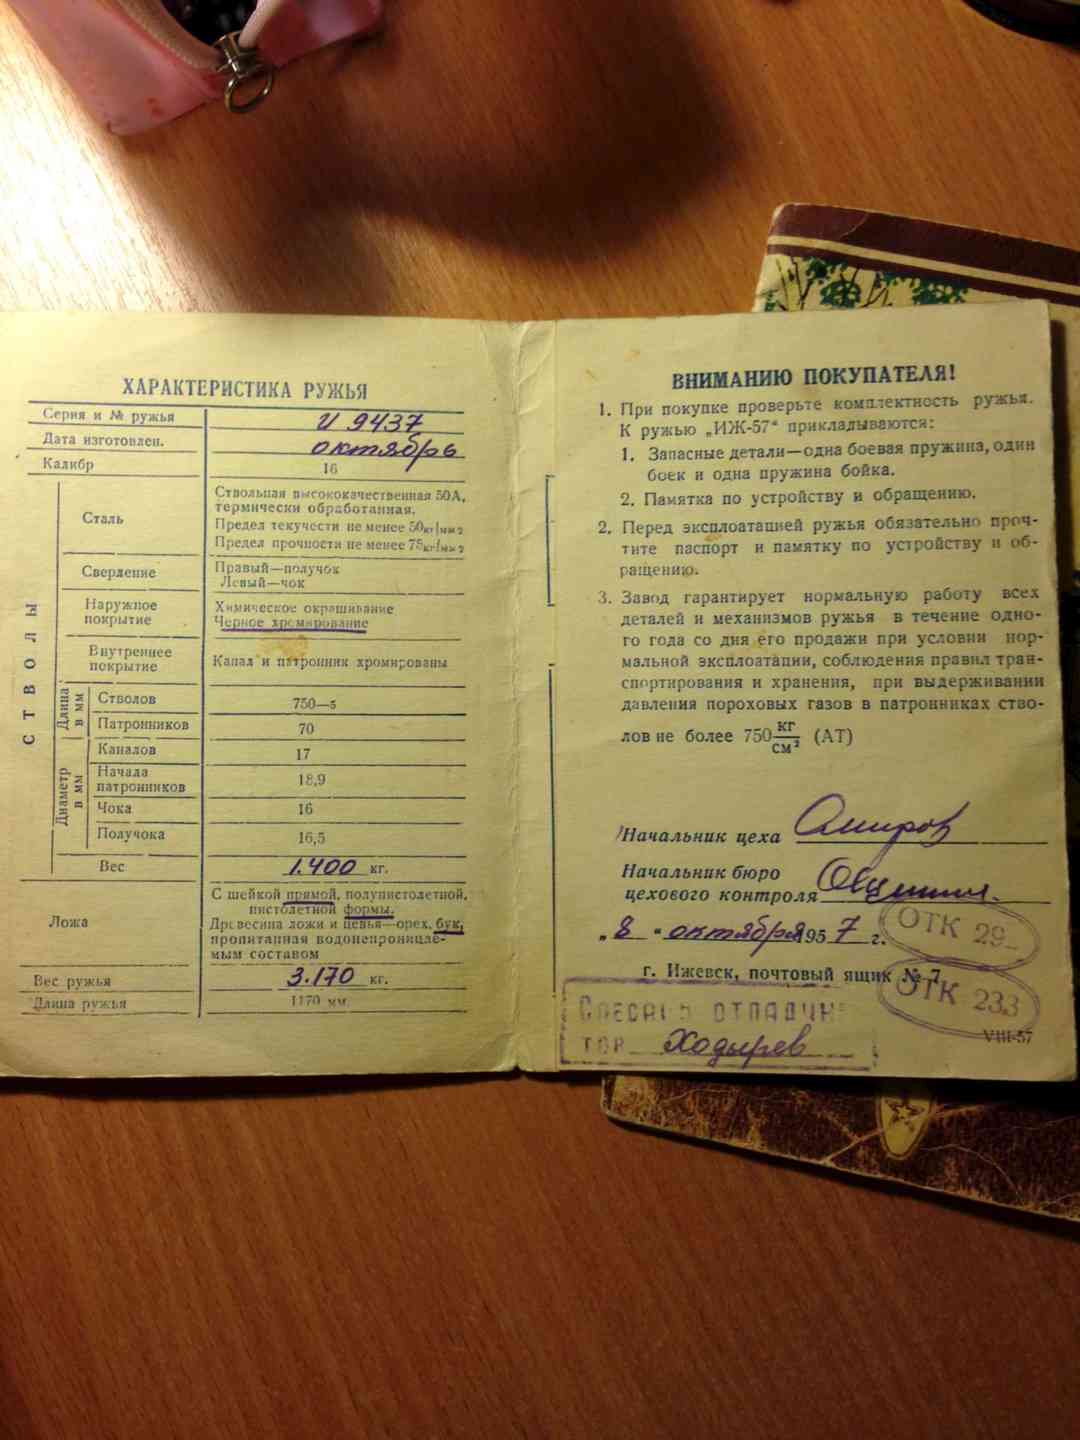 ХАРАКТЕРИСТИКА РУЖЬЯ
Серия и № ружья И 9437
Дата изготовлен. октябрь
Калибр 16
СТВОЛЫ
Сталь
Ствольная высококачественная 50А,
термически обработанная.
Предел текучести не менее 50кг/мм2
Предел прочности не менее 75кг/мм2
Сверление
Правый—получок
Левый—чок
Наружное
покрытие
Химическое окрашивание
Черное хромирование
Внутреннее
покрытие
Канал и патронник хромированы
Длина
в мм
Стволов 750—5
Патронников 70
Диаметр
в мм
Каналов 17
Начала
патронников 18,9
Чока 16
Получока 16,5
Вес 1.400 кг.
Ложа
С шейкой прямой, полупистолетной,
пистолетной формы.
Древесина ложи и цевья—орех, бук,
пропитанная водонепроницае-
мым составом
Вес ружья 3.170 кг.
Длина ружья 1170 мм
ВНИМАНИЮ ПОКУПАТЕЛЯ!
1. При покупке проверьте комплектность ружья.
К ружью „ИЖ-57“ прикладываются:
1. Запасные детали—одна боевая пружина, один
боек и одна пружина бойка.
2. Памятка по устройству и обращению.
2. Перед эксплоатацией ружья обязательно проч-
тите паспорт и памятку по устройству и об-
ращению.
3. Завод гарантирует нормальную работу всех
деталей и механизмов ружья в течение одно-
го года со дня его продажи при условии нор-
мальной эксплоатации, соблюдения правил тран-
спортирования и хранения, при выдерживании
давления пороховых газов в патронниках ство-
лов не более 750 кг/см² (АТ)
Начальник цеха Амиров
Начальник бюро
цехового контроля
„8“ октября 1957 г.
ОТК 29
г. Ижевск, почтовый ящик № 7
ОТК 233
СЛЕСАРЬ ОТЛАДЧИ
ТОВ. Ходырев
VIII-57